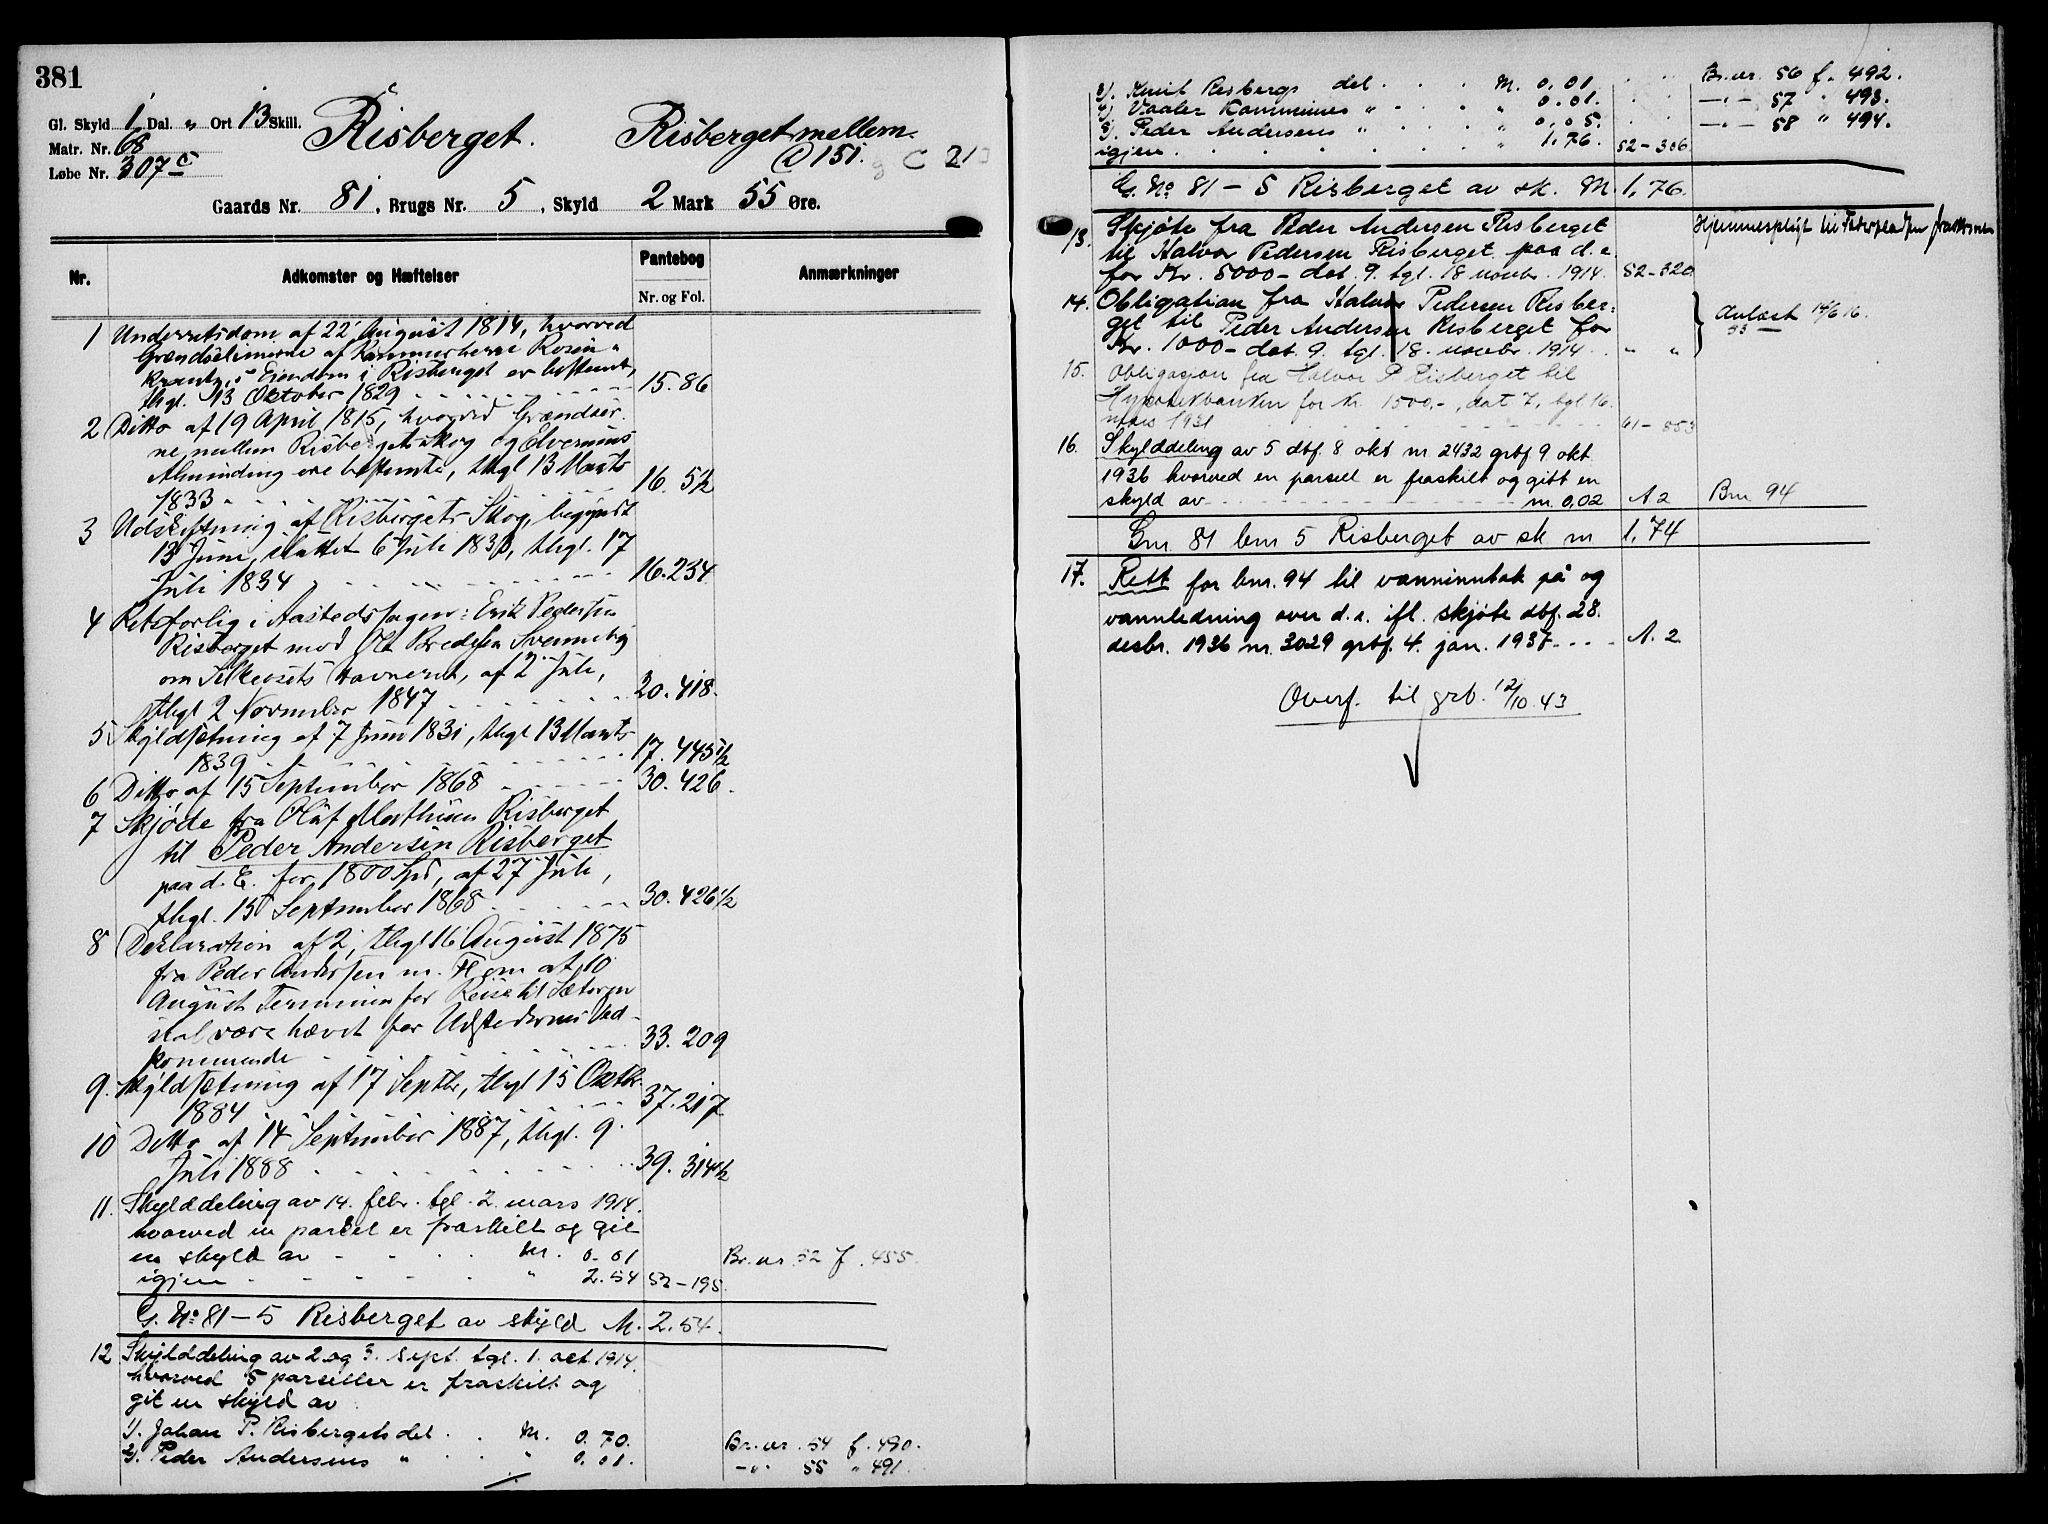 381
Gl. Skyld 1 Dal. " Ort 13 Skill.
Matr. Nr. 68
Løbe Nr. 307 c
Risberget. Risberget mellem.
@ 151.
Gaards Nr. 81, Brugs Nr. 5, Skyld 2 Mark 55 Øre.
Nr. Adkomster og Hæftelser Pantebog Anmærkninger
Nr. og Fol.
1 Underretsdom af 22 August 1814, hvorved
Grændselinierne af Kammerherre Rosen-
krantz's Eiendom i Risberget er bestemt,
thgl. 13 Oktober 1829 15.86
2 Ditto af 19 April 1815, hvorved Grændser-
ne mellem Risbergets skog og Elverums
Almending ere bestemte, thgl 13 Marts
1833 16.52
3 Udskiftning af Risbergets Skog, begyndt
13 Juni, sluttet 6 Juli 1833, thgl. 17
Juli 1834 16.234
4 Retsforlig i Aastedssagen: Erik Pedersen
Risberget mod Ole Bredesen Svenneby
om havneret, af 2 Juli,
thgl 2 November 1847 20.418.
5 Skyldsetning af 7 Juni 1831, thgl 13 Marts
1839 17.445 1/2
6 Ditto af 15 September 1868 30.426.
7 Skjøde fra Oluf Mathisen Risberget
til Peder Andersen Risberget
paa d. E. for 1800 Spd, af 27 Juli,
thgl. 15 September 1868 30.426 1/2
8 Deklaration af 2, thgl 16 August 1875
fra Peder Andersen m. Fl om at 10
August Terminen for Reise til Sæteren
skal være hævet for Udstedernes Ved-
kommende 33.209
9. Skyldsetning af 17 Septbr, thgl 15 Oktbr.
1884 37.217
10 Ditto af 14 September 1887, thgl. 9
Juli 1888 39.314 1/2
11. Skylddeling av 14. febr. tgl. 2. mars 1914.
hvorved en parcel er fraskilt og git
en skyld av M. 0.01 Br.nr. 52 f. 455.
igjen " 2.54 52-195.
G. No 81-5 Risberget av skyld M. 2.54.
12 Skylddeling av 2 og 3. sept. tgl. 1. oct. 1914.
hvorved 5 parseller er fraskilt og
git en skyld av
1). Johan P. Risbergets del M. 0.70. Br.nr. 54 f. 490.
2). Peder Andersens " " 0.01. -"- 55 " 491.
3). Knut Risbergs del M. 0.01 Br.nr. 56 f. 492.
4). Vaaler Kommunes " " 0.01. -"- 57 " 493.
5). Peder Andersens " " 0.05. -"- 58 " 494.
igjen " 1.76. 52-306
G. No 81-5 Risberget av sk. M. 1,76.
13. Skjøte fra Peder Andersen Risberget Hjemmelspligt til
til Halvor Pedersen Risberget paa d.e.
for Kr. 5000- dat. 9. tgl. 18 novbr. 1914. 52-320
14. Obligation fra Halvor Pedersen Risber-
get til Peder Andersen Risberget for Avlæst 14/6 16.
Kr. 1000- dat. 9. tgl. 18. novbr. 1914. " "
15. Obligasjon fra Halvor P Risberget til
Hypotekbanken for kr. 1500,-, dat 7, tgl 16.
mars 1931 61-553
16. Skylddeling av 5 dbf. 8 okt nr 2432 grbf 9 okt
1936 hvorved en parsel er fraskilt og gitt en
skyld av m 0,02 A 2 Bnr 94
Gnr. 81 bnr 5 Risberget av sk m 1,74
17. Rett for bnr. 94 til vanninntak på og
vannledning over d.e. ifl. skjøte dbf. 28.
desbr. 1936 nr. 3029 grbf. 4. jan. 1937 A. 2
Overf. til grb. 12/10.43